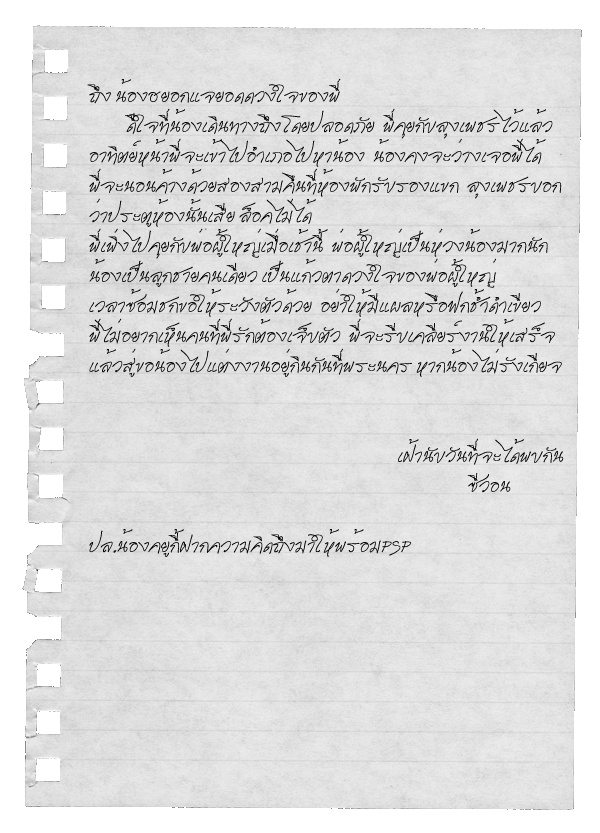 ถึง น้องชยอกแจยอดดวงใจของพี่
ดีใจที่น้องเดินทางถึงโดยปลอดภัย พี่คุยกับลุงเพชรไว้แล้ว
อาทิตย์หน้าพี่จะเข้าไปอำเภอไปหาน้อง น้องคงจะว่างเจอพี่ได้
พี่จะนอนค้างด้วยสองสามคืนที่ห้องพักรับรองแขก ลุงเพชรบอก
ว่าประตูห้องนั้นเสีย ล็อคไม่ได้
พี่เพิ่งไปคุยกับพ่อผู้ใหญ่เมื่อเช้านี้ พ่อผู้ใหญ่เป็นห่วงน้องมากนัก
น้องเป็นลูกชายคนเดียว เป็นแก้วตาดวงใจของพ่อผู้ใหญ่
เวลาซ้อมชกขอให้ระวังตัวด้วย อย่าให้มีแผลหรือฟกช้ำดำเขียว
พี่ไม่อยากเห็นคนที่พี่รักต้องเจ็บตัว พี่จะรีบเคลียร์งานให้เสร็จ
แล้วสู่ขอน้องไปแต่งงานอยู่กินกันที่พระนคร หากน้องไม่รังเกียจ
เฝ้านับวันที่จะได้พบกัน
ซีวอน
ปล.น้องคยูกี้ฝากความคิดถึงมาให้พร้อมPSP